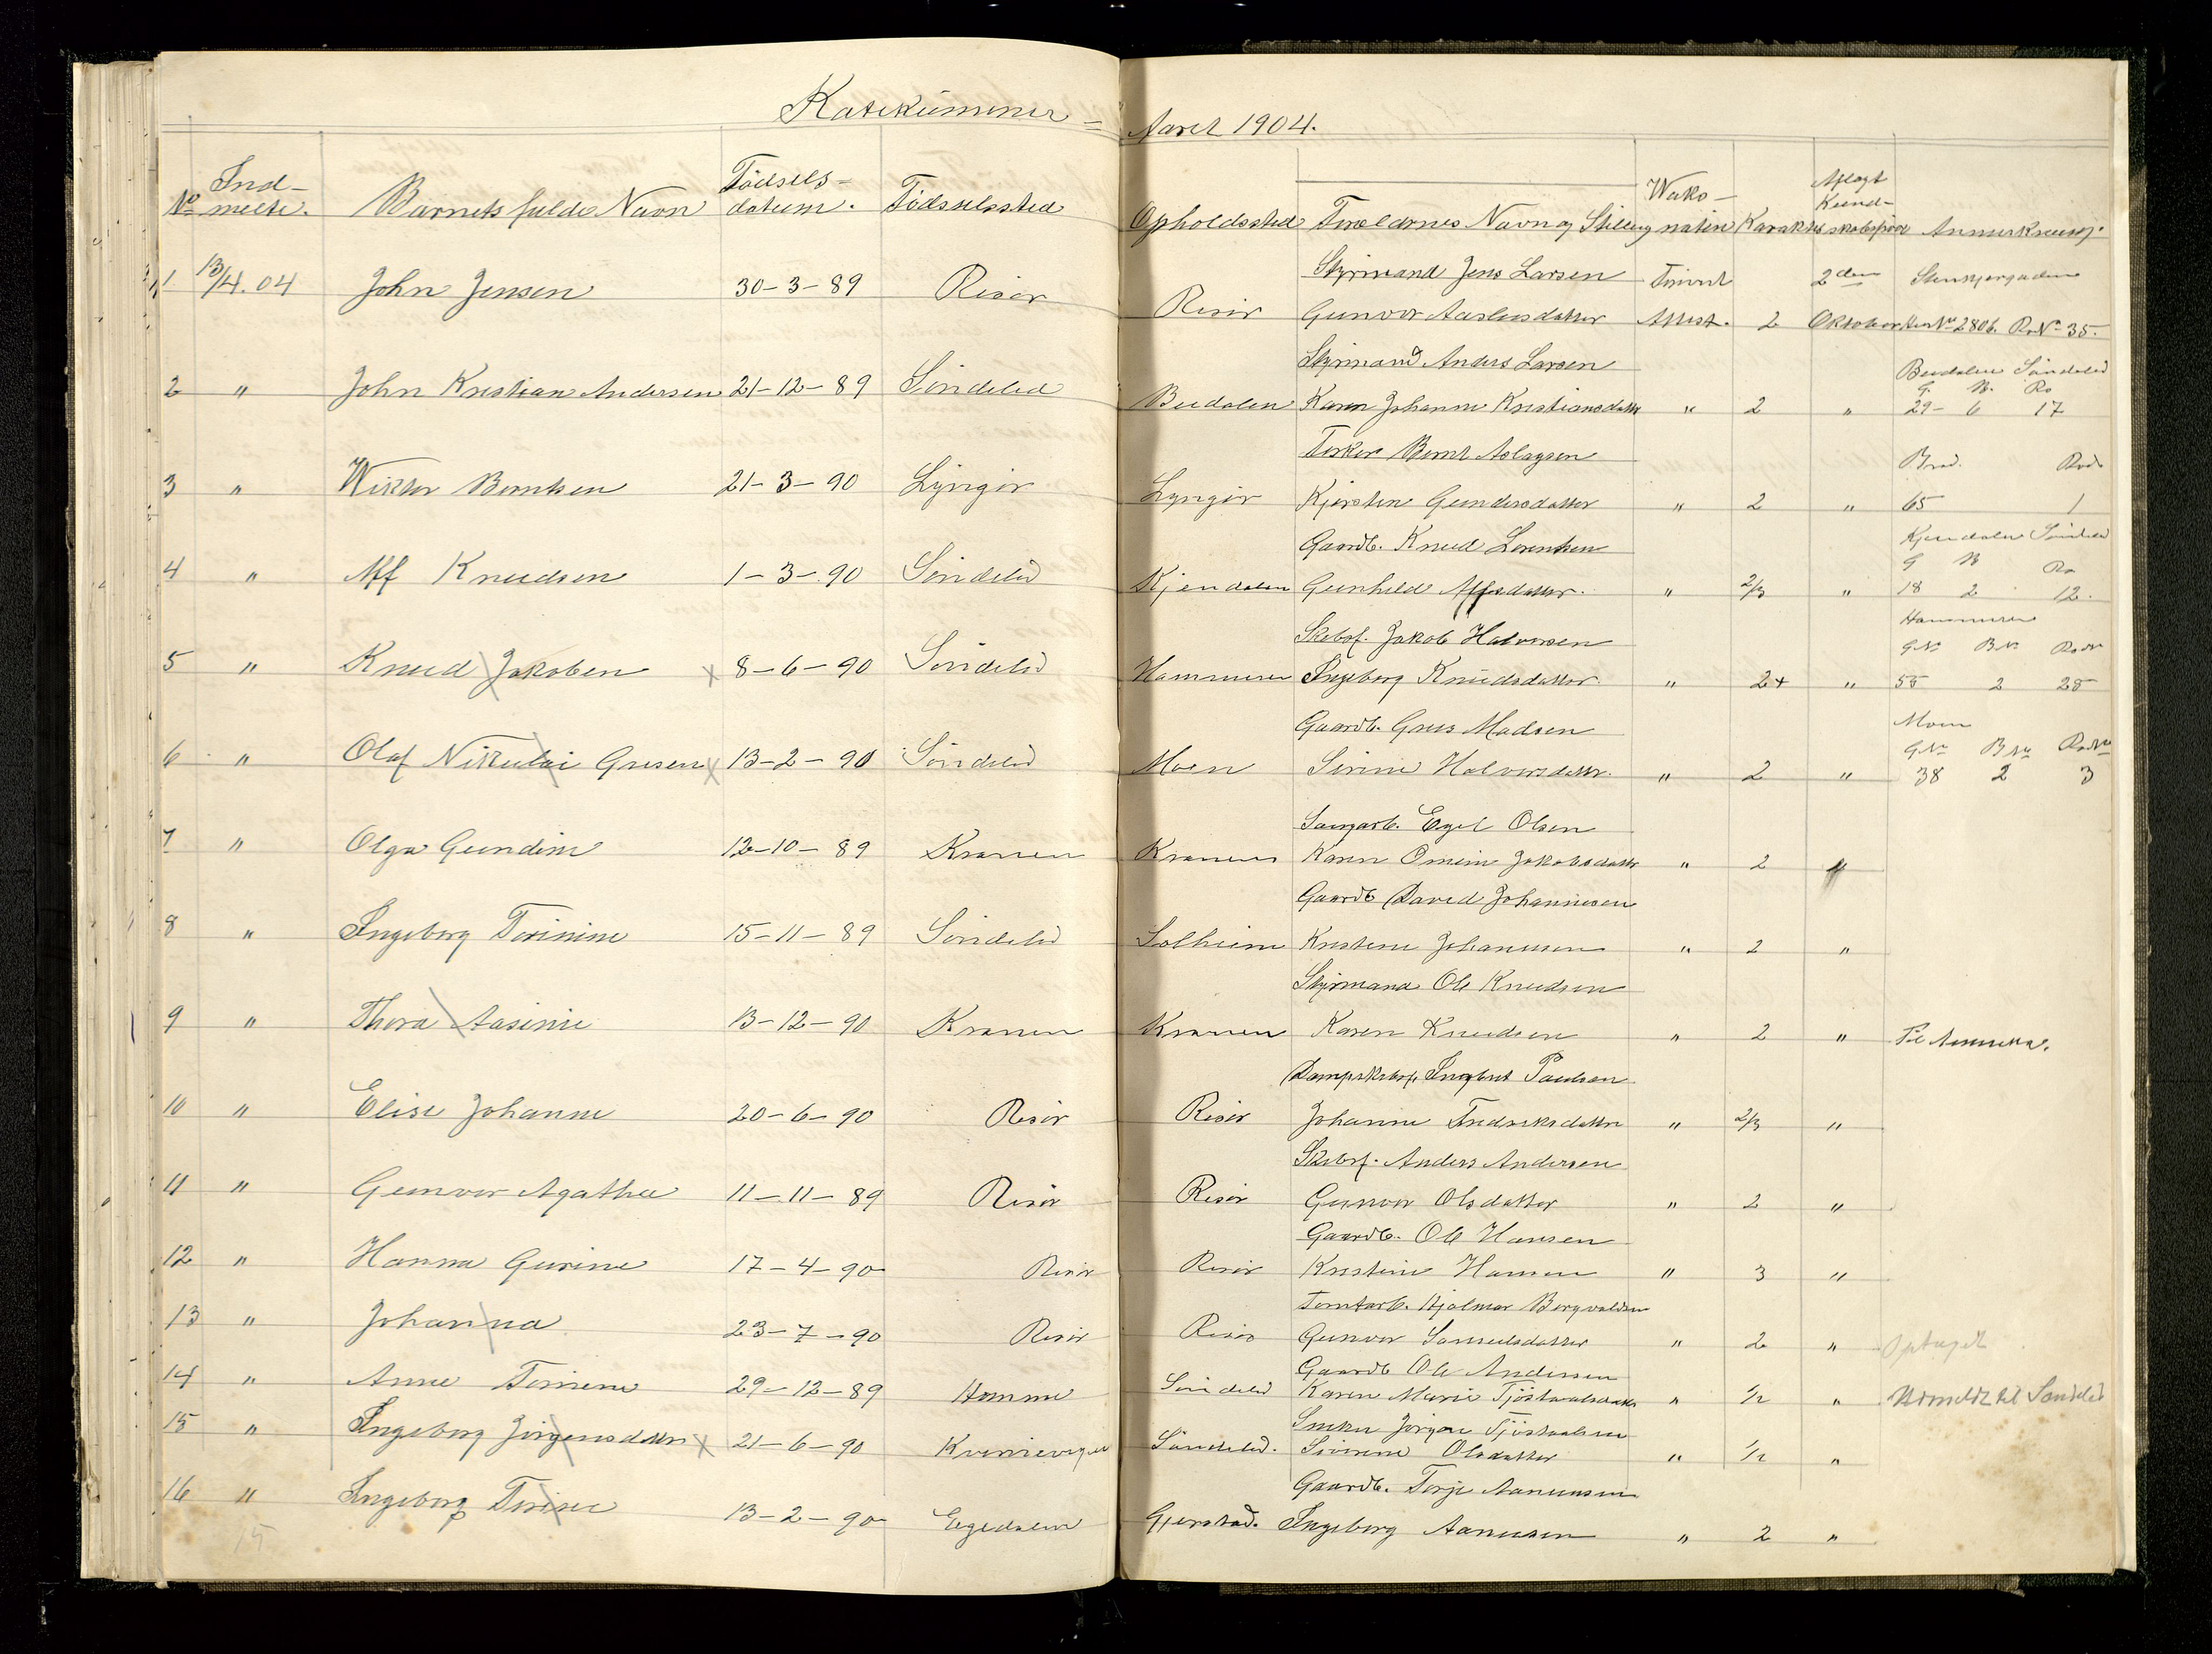 Katekümener = Aaret 1904.
No Ind-meldt. Barnets fulde Navn Födsels-datum. Födselssted Opholdssted Forældrenes Navn og Stilling Wakcination Karakter Aflagt Kund-skabspröve Anmerkning.
1 13/4.04 John Jensen 30-3-89 Risör Risör Styrmand Jens Larsen
Gunvor Aaslusdatter Attest. 2 2den Oktober No 2806. Ro No 35.
2 " John Kristian Andersen 21-12-89 Söndeled Styrmand Anders Larsen
Karen Johanne Kristiansdatter " 2 " Söndeled
G. N. Ro
29- 6 17
3 " Wiktor Berntsen 21-3-90 Lyngör Lyngör Fisker Bernt Aslagsen
Kjersten Gundersdatter " 2 " 65 1
4 " Alf Knudsen 1-3-90 Söndeled Kjendalen Gaardb. Knud Lorentsen
Gunhild Alfsdatter. " 2/3 " Kjendalen Söndeled
G N Ro
18 2 12.
5 " Knud Jakobsen x 8-6-90 Söndeled Hammeren Skibsf. Jakob Halvorsen
Ingeborg Knudsdatter. " 2+ " Hammeren
G.N. B.N. Ro N
55 2 28
6 " Olaf Nikolai Gresen x 13-2-90 Söndeled Moen Gaardb. Gres Madsen
Sirine Halvorsdatter. " 2 " Moen
G.No B.No Ro.No
38 2 3
7 " Olga Gundine 12-10-89 Kranen Kranen Egel Olsen
Karen Jakobsdatter " 2 "
8 " Ingeborg Torinine 15-11-89 Söndeled Solheim Gaardb David Johannesen
Kristine Johannesen " 2 "
9 " Thora Aasine 13-12-90 Kranen Kranen Styrmand Ole Knudsen
Karen Knudsen " 2 " Til Amerika.
10 " Elise Johanne 20-6-90 Risör Risör Dampskibsf. Ingbret Paulsen
Johanne Fredriksdatter " 2/3 "
11 " Gunvor Agathe 11-11-89 Risör Risör Skibsf. Anders Andersen
Gunvor Olsdatter " 2 "
12 " Hanna Gurine 17-4-90 Risör Risör Gaardb. Ole Hansen
Kristine Hansen " 3 "
13 " Johanna 23-7-90 Risör Risör Tomtarb. Hjalmar Bergvaldsen
Gunvor Samuelsdatter " 2 " Optaget
14 " Anne Tomine 29-12-89 Homme Söndeled Gaardb Ole Andersen
Karen Marie Tjöstaalsdatter " 1/2 " Utmeldt til Söndeled
15 " Ingeborg Jörgensdatter x 21-6-90 Söndeled. Snekker Jörgen Tjöstaalsen
Sirene Olsdatter " 1/2 "
16 " Ingeborg Torine 13-2-90 Egedalen Gjerstad. Gaardb. Terje Aanensen
Ingeborg Aanensen " 2 "
15